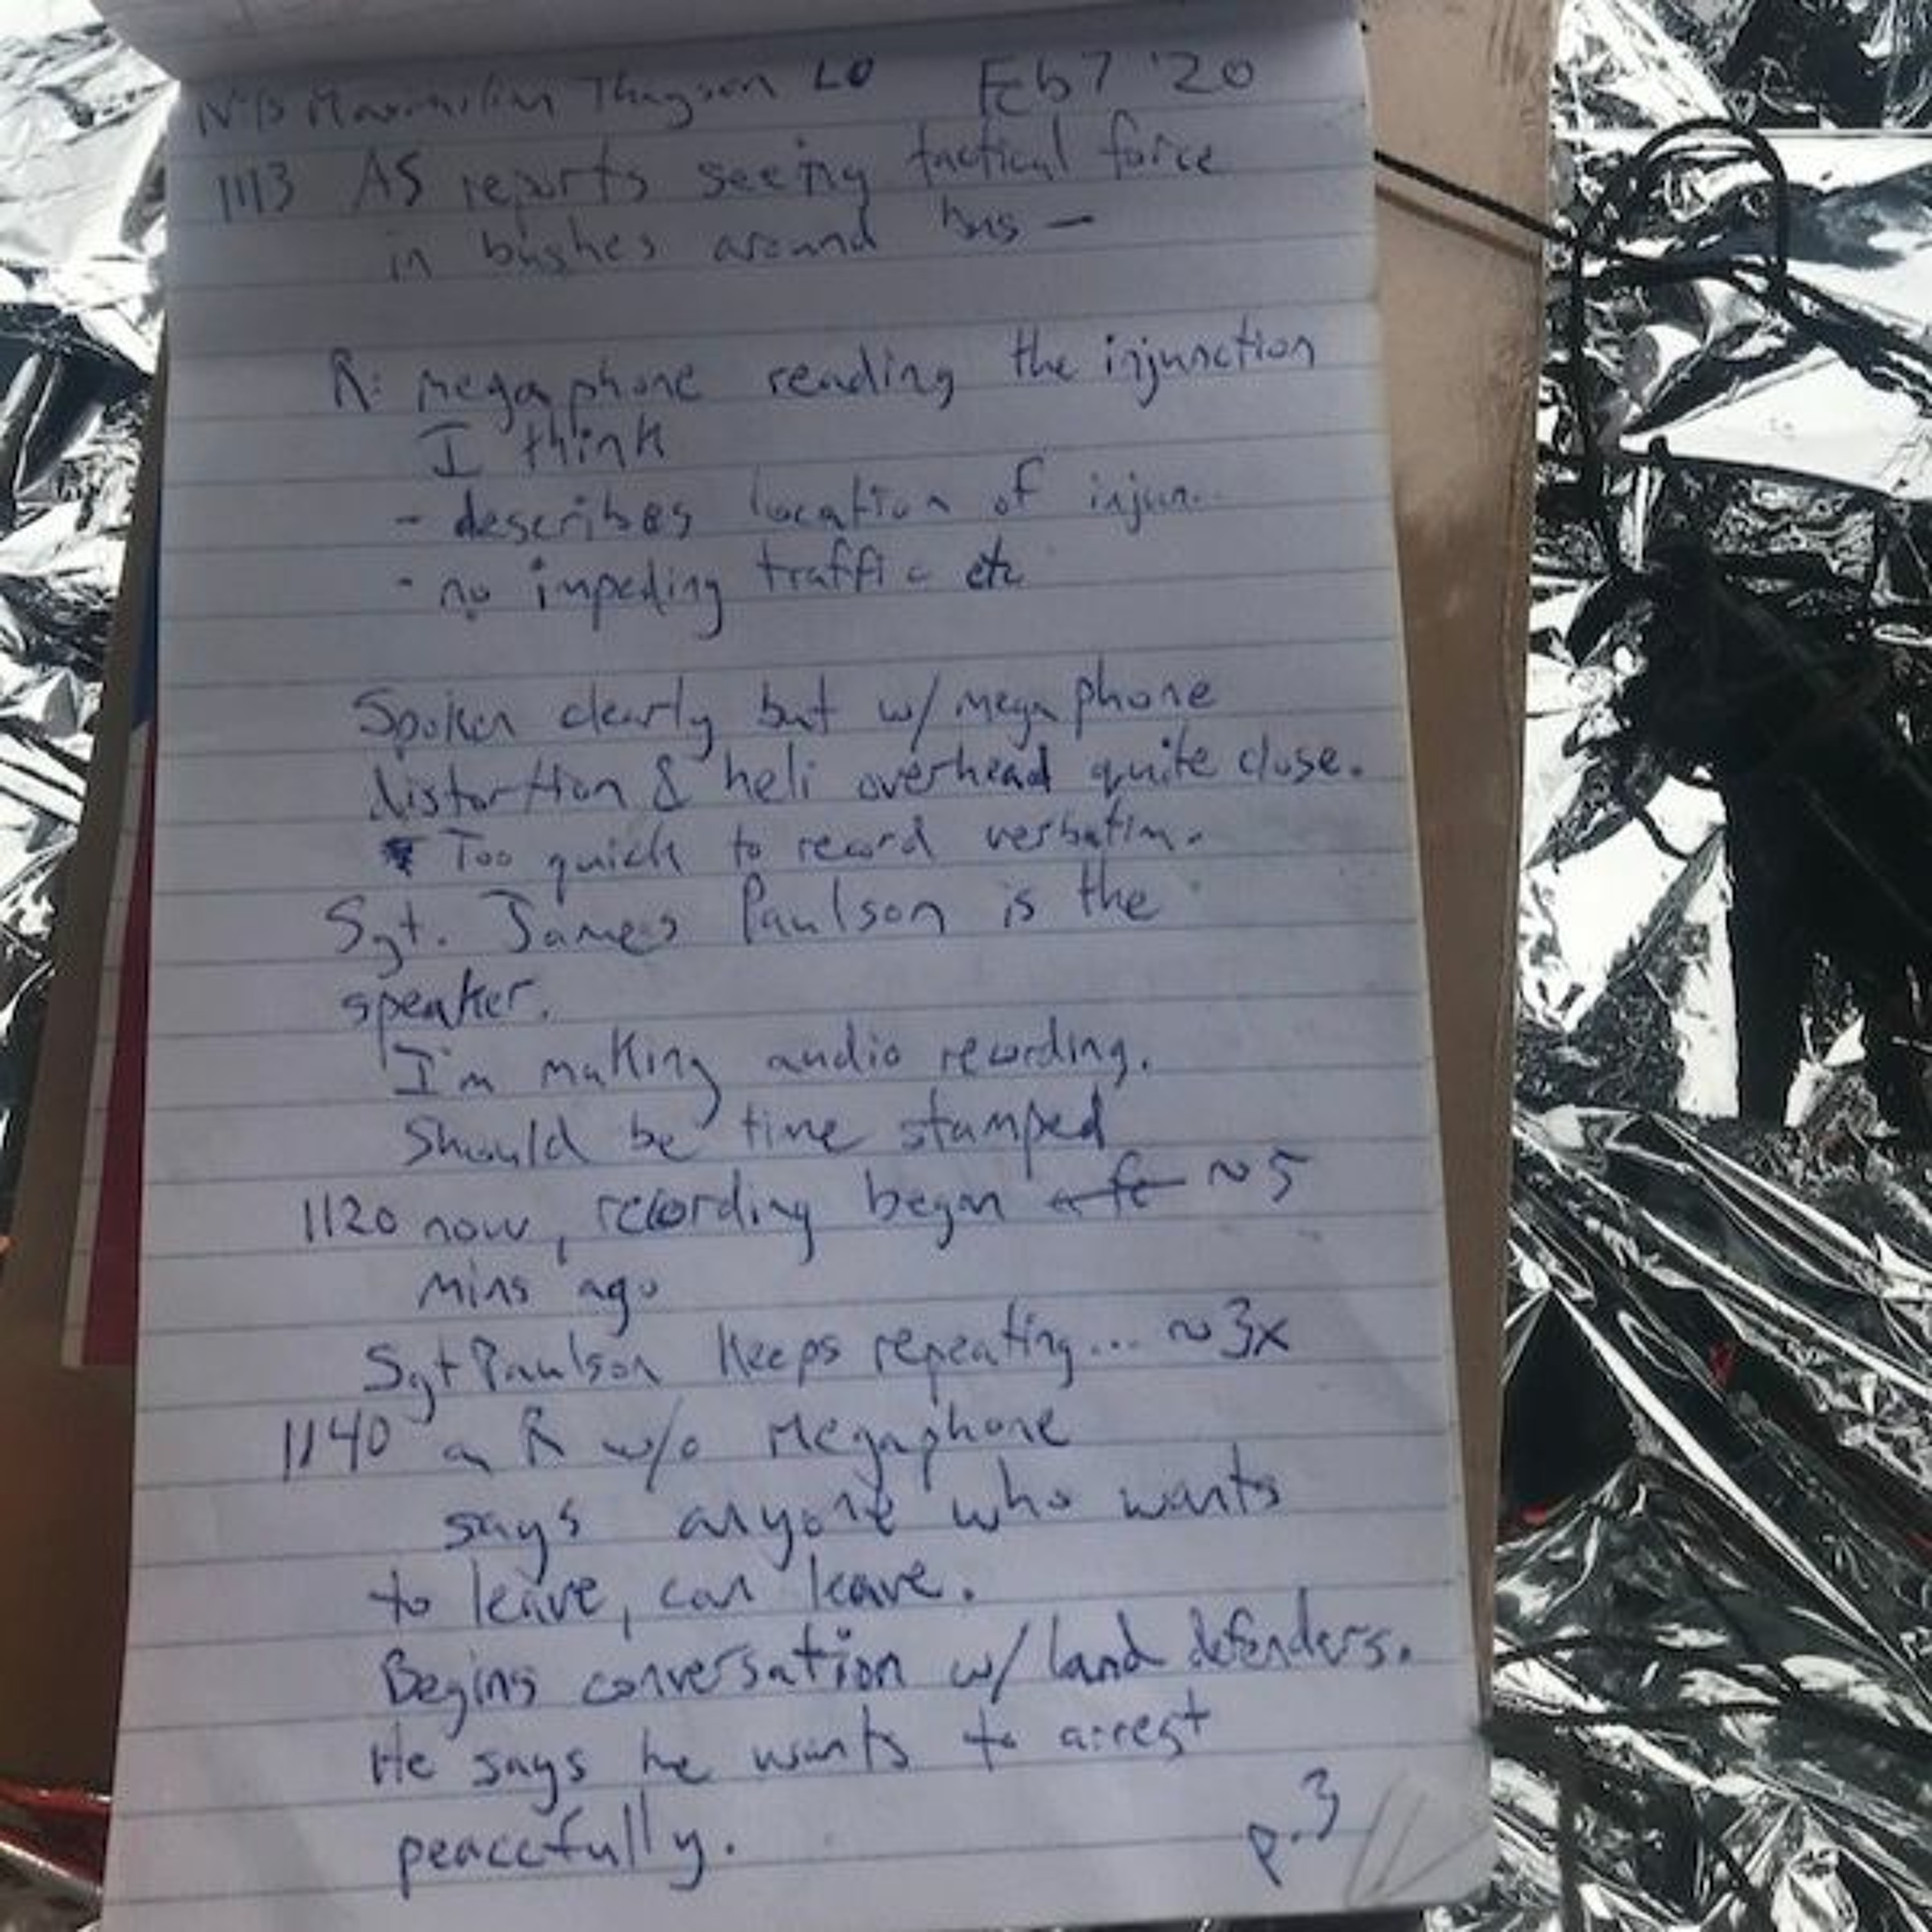 LO Feb 7 '20
1113 AS reports seeing tactical force
in bushes around bus –
R: megaphone reading the injunction
I think
- describes location of injun...
- no impeding traffic etc
Spoken clearly but w/ megaphone
distortion & heli overhead quite close.
Too quick to record verbatim.
Sgt. James Paulson is the
speaker.
I'm making audio recording.
Should be time stamped
1120 now, recording began a fe ~5
mins ago
Sgt Paulson keeps repeating... ~3x
1140 a R w/o Megaphone
says anyone who wants
to leave, can leave.
Begins conversation w/ land defenders.
He says he wants to arrest
peacefully.
p.3